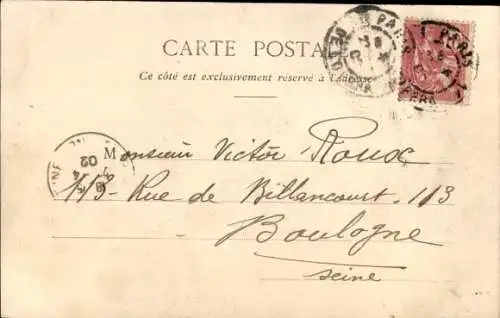 CARTE POSTALE
Ce côté est exclusivement réservé à l'adresse
PARIS
PARIS
02
Monsieur Victor Roux
113 - Rue de Billancourt . 113
Boulogne
Seine